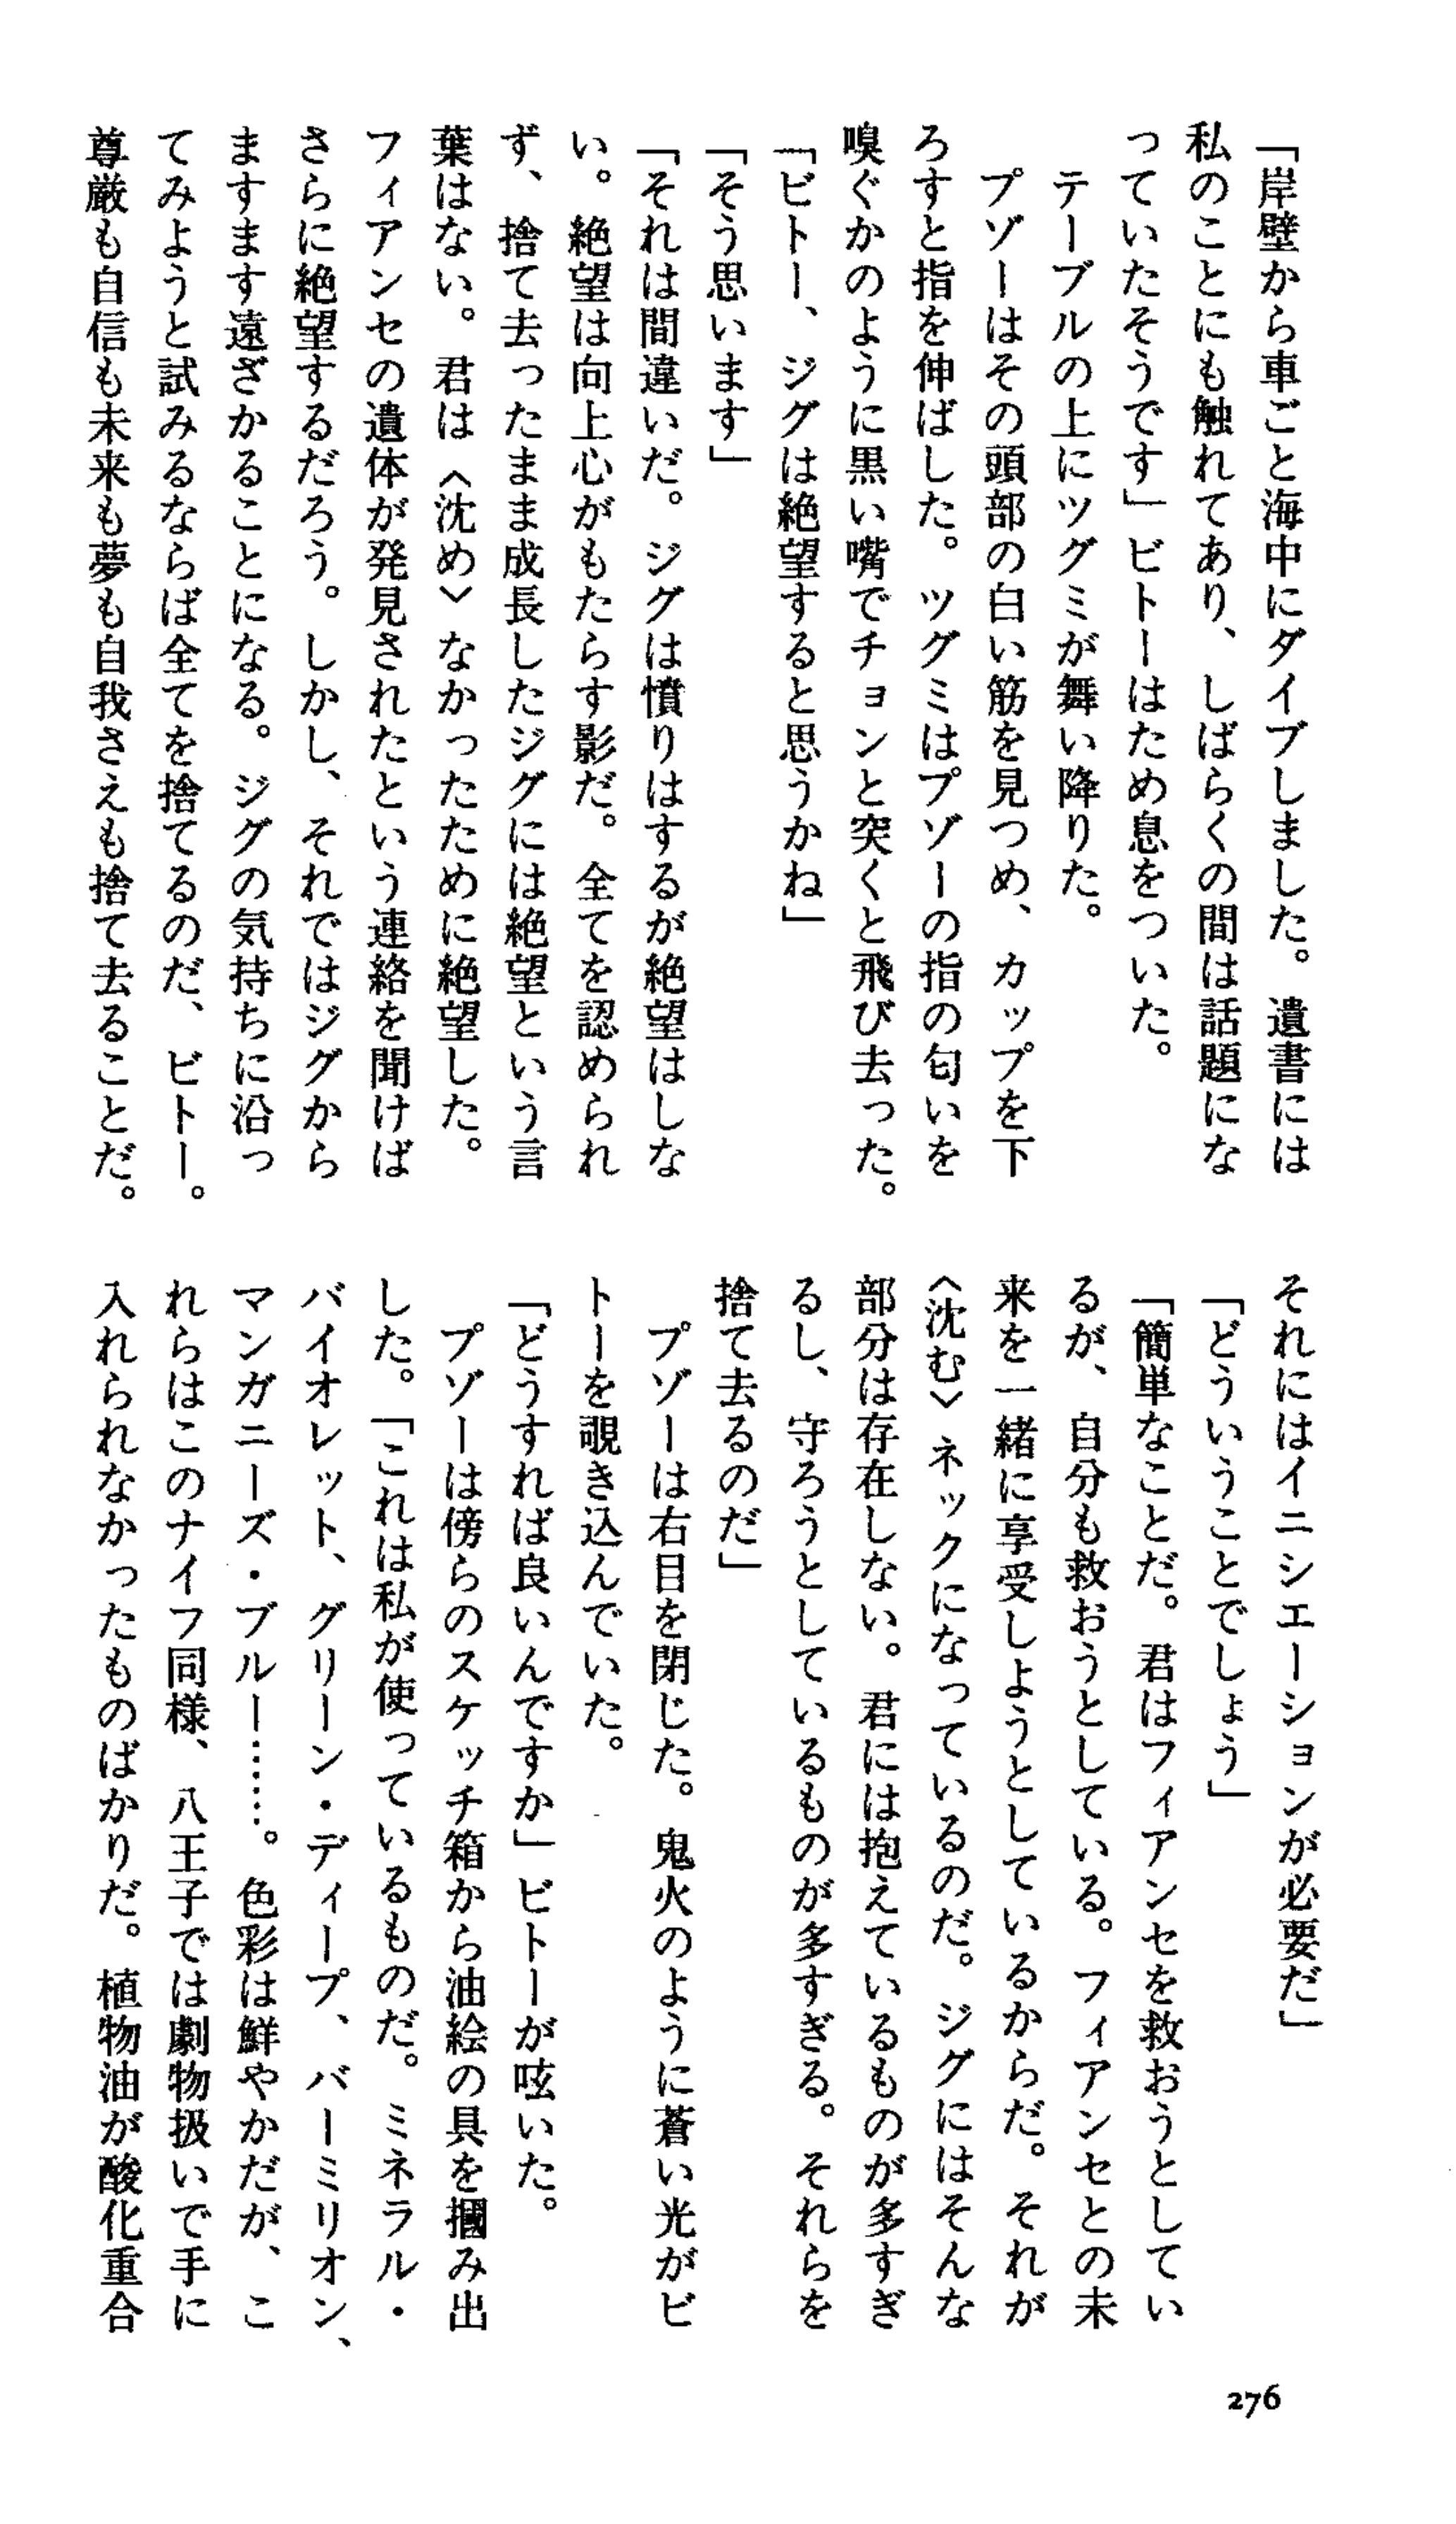 「岸壁から車ごと海中にダイブしました。遺書には
私のことにも触れてあり、しばらくの間は話題にな
っていたそうです」ビトーはため息をついた。
テーブルの上にツグミが舞い降りた。
プゾーはその頭部の白い筋を見つめ、カップを下
ろすと指を伸ばした。ツグミはプゾーの指の匂いを
嗅ぐかのように黒い嘴でチョンと突くと飛び去った。
「ビトー、ジグは絶望すると思うかね」
「そう思います」
「それは間違いだ。ジグは憤りはするが絶望はしな
い。絶望は向上心がもたらす影だ。全てを認められ
ず、捨て去ったまま成長したジグには絶望という言
葉はない。君は〈沈め〉なかったために絶望した。
フィアンセの遺体が発見されたという連絡を聞けば
さらに絶望するだろう。しかし、それではジグから
ますます遠ざかることになる。ジグの気持ちに沿っ
てみようと試みるならば全てを捨てるのだ、ビトー。
尊厳も自信も未来も夢も自我さえも捨て去ることだ。
それにはイニシエーションが必要だ」
「どういうことでしょう」
「簡単なことだ。君はフィアンセを救おうとしてい
るが、自分も救おうとしている。フィアンセとの未
来を一緒に享受しようとしているからだ。それが
〈沈む〉ネックになっているのだ。ジグにはそんな
部分は存在しない。君には抱えているものが多すぎ
るし、守ろうとしているものが多すぎる。それらを
捨て去るのだ」
プゾーは右目を閉じた。鬼火のように蒼い光がビ
トーを覗き込んでいた。
「どうすれば良いんですか」ビトーが呟いた。
プゾーは傍らのスケッチ箱から油絵の具を摑み出
した。「これは私が使っているものだ。ミネラル・
バイオレット、グリーン・ディープ、バーミリオン、
マンガニーズ・ブルー……。色彩は鮮やかだが、こ
れらはこのナイフ同様、八王子では劇物扱いで手に
入れられなかったものばかりだ。植物油が酸化重合
276